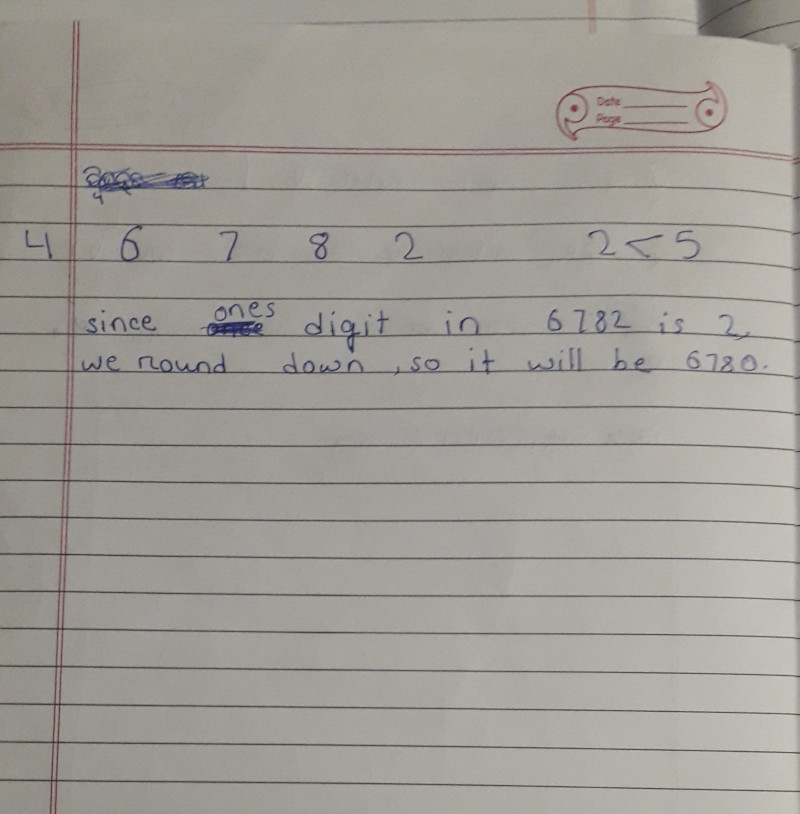 Date
Page
4 6 7 8 2 2 < 5
since ones digit in 6782 is 2,
we round down, so it will be 6780.